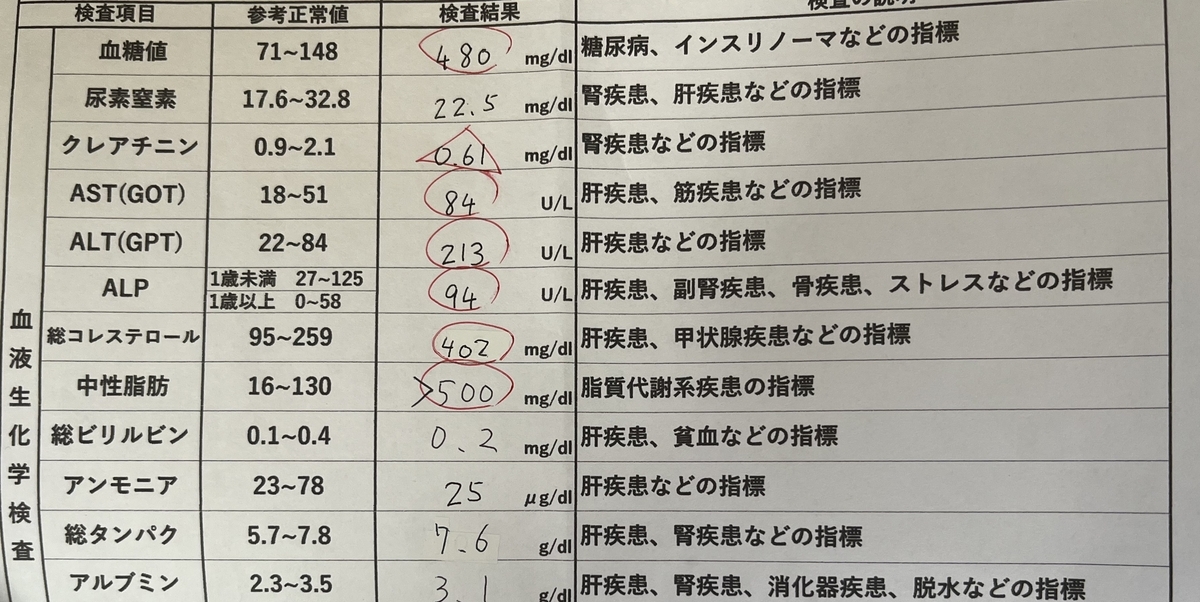 検査項目 参考正常値 検査結果 検査の説明
血液生化学検査
血糖値 71~148 480 mg/dl 糖尿病、インスリノーマなどの指標
尿素窒素 17.6~32.8 22.5 mg/dl 腎疾患、肝疾患などの指標
クレアチニン 0.9~2.1 0.61 mg/dl 腎疾患などの指標
AST(GOT) 18~51 84 U/L 肝疾患、筋疾患などの指標
ALT(GPT) 22~84 213 U/L 肝疾患などの指標
ALP 1歳未満 27~125 94 U/L 肝疾患、副腎疾患、骨疾患、ストレスなどの指標
1歳以上 0~58
総コレステロール 95~259 402 mg/dl 肝疾患、甲状腺疾患などの指標
中性脂肪 16~130 >500 mg/dl 脂質代謝系疾患の指標
総ビリルビン 0.1~0.4 0.2 mg/dl 肝疾患、貧血などの指標
アンモニア 23~78 25 μg/dl 肝疾患などの指標
総タンパク 5.7~7.8 7.6 g/dl 肝疾患、腎疾患などの指標
アルブミン 2.3~3.5 3.1 g/dl 肝疾患、腎疾患、消化器疾患、脱水などの指標